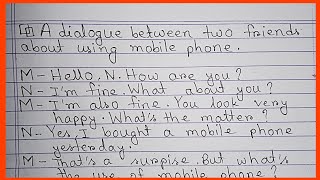 A dialogue between two friends
about using mobile phone.
M-Hello, N. How are you?
N-I'm fine. What about you?
M-I'm also fine. You look very
happy. What's the matter?
N-Yes, I bought a mobile phone
yesterday.
M-That's a surpise. But what's
the use of mobile phone?